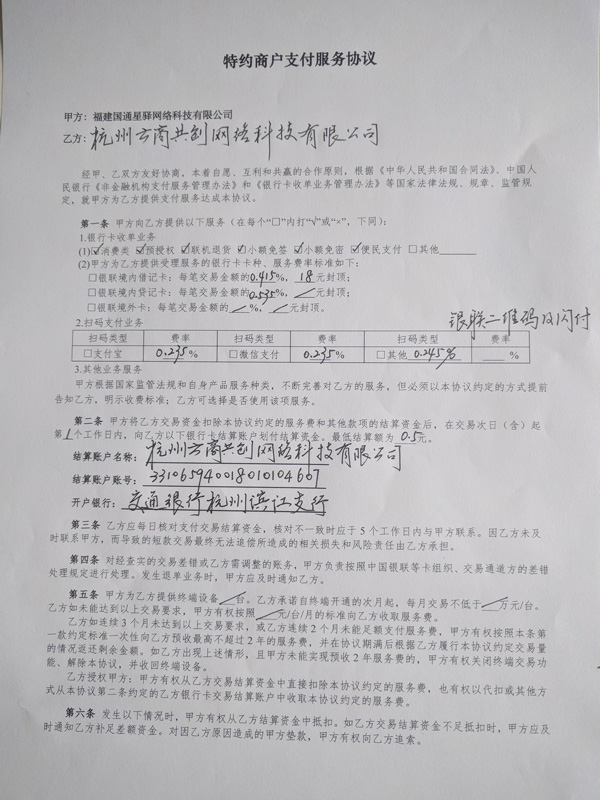 特约商户支付服务协议
甲方：福建国通星驿网络科技有限公司
乙方：杭州云商共创网络科技有限公司
经甲、乙双方友好协商，本着自愿、互利和共赢的合作原则，根据《中华人民共和国合同法》、中国人
民银行《非金融机构支付服务管理办法》和《银行卡收单业务管理办法》等国家法律法规、规章、监管规
定，就甲方为乙方提供支付服务达成本协议。
第一条 甲方向乙方提供以下服务（在每个“□”内打“√”或“×”，下同）：
1.银行卡收单业务
(1)☑消费类 ☑预授权 ☑联机退货 ☑小额免签 ☑小额免密 ☑便民支付 □其他
(2)甲方为乙方提供受理服务的银行卡卡种、服务费率标准如下：
□银联境内借记卡：每笔交易金额的0.415%，18元封顶；
□银联境内贷记卡：每笔交易金额的0.535%，／元封顶；
□银联境外卡：每笔交易金额的／%，／元封顶。
银联二维码及闪付
2.扫码支付业务
扫码类型 费率 扫码类型 费率 扫码类型 费率
□支付宝 0.235% □微信支付 0.235% □其他 0.245% %
3.其他业务服务
甲方根据国家监管法规和自身产品服务种类，不断完善对乙方的服务，但必须以本协议约定的方式提前
告知乙方，明示收费标准；乙方可选择是否使用该项服务。
第二条 甲方将乙方交易资金扣除本协议约定的服务费和其他款项的结算资金后，在交易次日（含）起
第1个工作日内，向乙方以下银行卡结算账户划付结算资金。最低结算额为0.5元。
结算账户名称：杭州云商共创网络科技有限公司
结算账户账号：331065940018010104607
开户银行：交通银行杭州滨江支行
第三条 乙方应每日核对支付交易结算资金，核对不一致时应于5个工作日内与甲方联系。因乙方未及
时联系甲方，而导致的短款交易最终无法追偿所造成的相关损失和风险责任由乙方承担。
第四条 对经查实的交易差错或乙方需调整的账务，甲方负责按照中国银联等卡组织、交易通道方的差错
处理规定进行处理。发生退单业务时，甲方应及时通知乙方。
第五条 甲方为乙方提供终端设备／台。乙方承诺自终端开通的次月起，每月交易不低于／万元/台。
乙方如未能达到以上交易要求，甲方有权按照／元/台/月的标准向乙方收取服务费。
乙方如连续3个月未达到以上交易要求，或乙方连续2个月未能足额支付服务费，甲方有权按照本条第
一款约定标准一次性向乙方预收最高不超过2年的服务费，并在协议期满后根据乙方履行本协议约定交易量
的情况返还剩余金额。如乙方出现上述情形，且甲方未能实现预收2年服务费的，甲方有权关闭终端交易功
能、解除本协议，并收回终端设备。
乙方授权甲方：甲方有权从乙方交易结算资金中直接扣除本协议约定的服务费，也有权以代扣或其他方
式从本协议第二条约定的乙方银行卡交易结算账户中收取本协议约定的服务费。
第六条 发生以下情况时，甲方有权从乙方结算资金中抵扣。如乙方交易结算资金不足抵扣时，甲方应及
时通知乙方补足差额资金。对因乙方原因造成的甲方垫款，甲方有权向乙方追索。